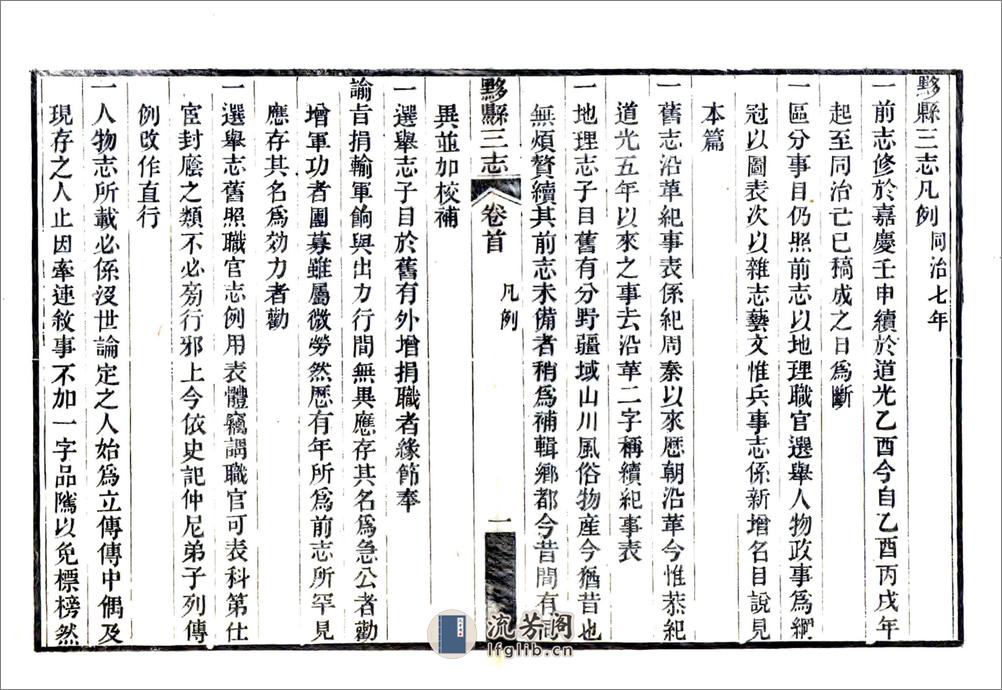 黟縣三志凡例同治七年
一前志修於嘉慶壬申續於道光乙酉今自乙酉丙戌年
起至同治己巳稿成之日爲斷
一區分事目仍照前志以地理職官選舉人物政事爲綱
冠以圖表次以雜志藝文惟兵事志係新增名目說見
本篇
一舊志沿革紀事表係紀周秦以來歷朝沿革今惟恭紀
道光五年以來之事去沿革二字稱續紀事表
一地理志子目舊有分野疆域山川風俗物産今猶昔也
無煩贅續其前志未備者稍爲補輯鄉都今昔間有
黟縣三志 卷首 凡例 一
異並加校補
一選舉志子目於舊有外增捐職者緣節奉
諭旨捐輸軍餉與出力行間無異應存其名爲急公者勸
增軍功者團募雖屬微勞然歷有年所爲前志所罕見
應存其名爲効力者勸
一選舉志舊照職官志例用表體竊謂職官可表科第仕
宦封廕之類不必旁行邪上今依史記仲尼弟子列傳
例改作直行
一人物志所載必係沒世論定之人始爲立傳傳中偶及
現存之人止因牽連敘事不加一字品隲以免標榜然
流芳阁
lfglib.cn